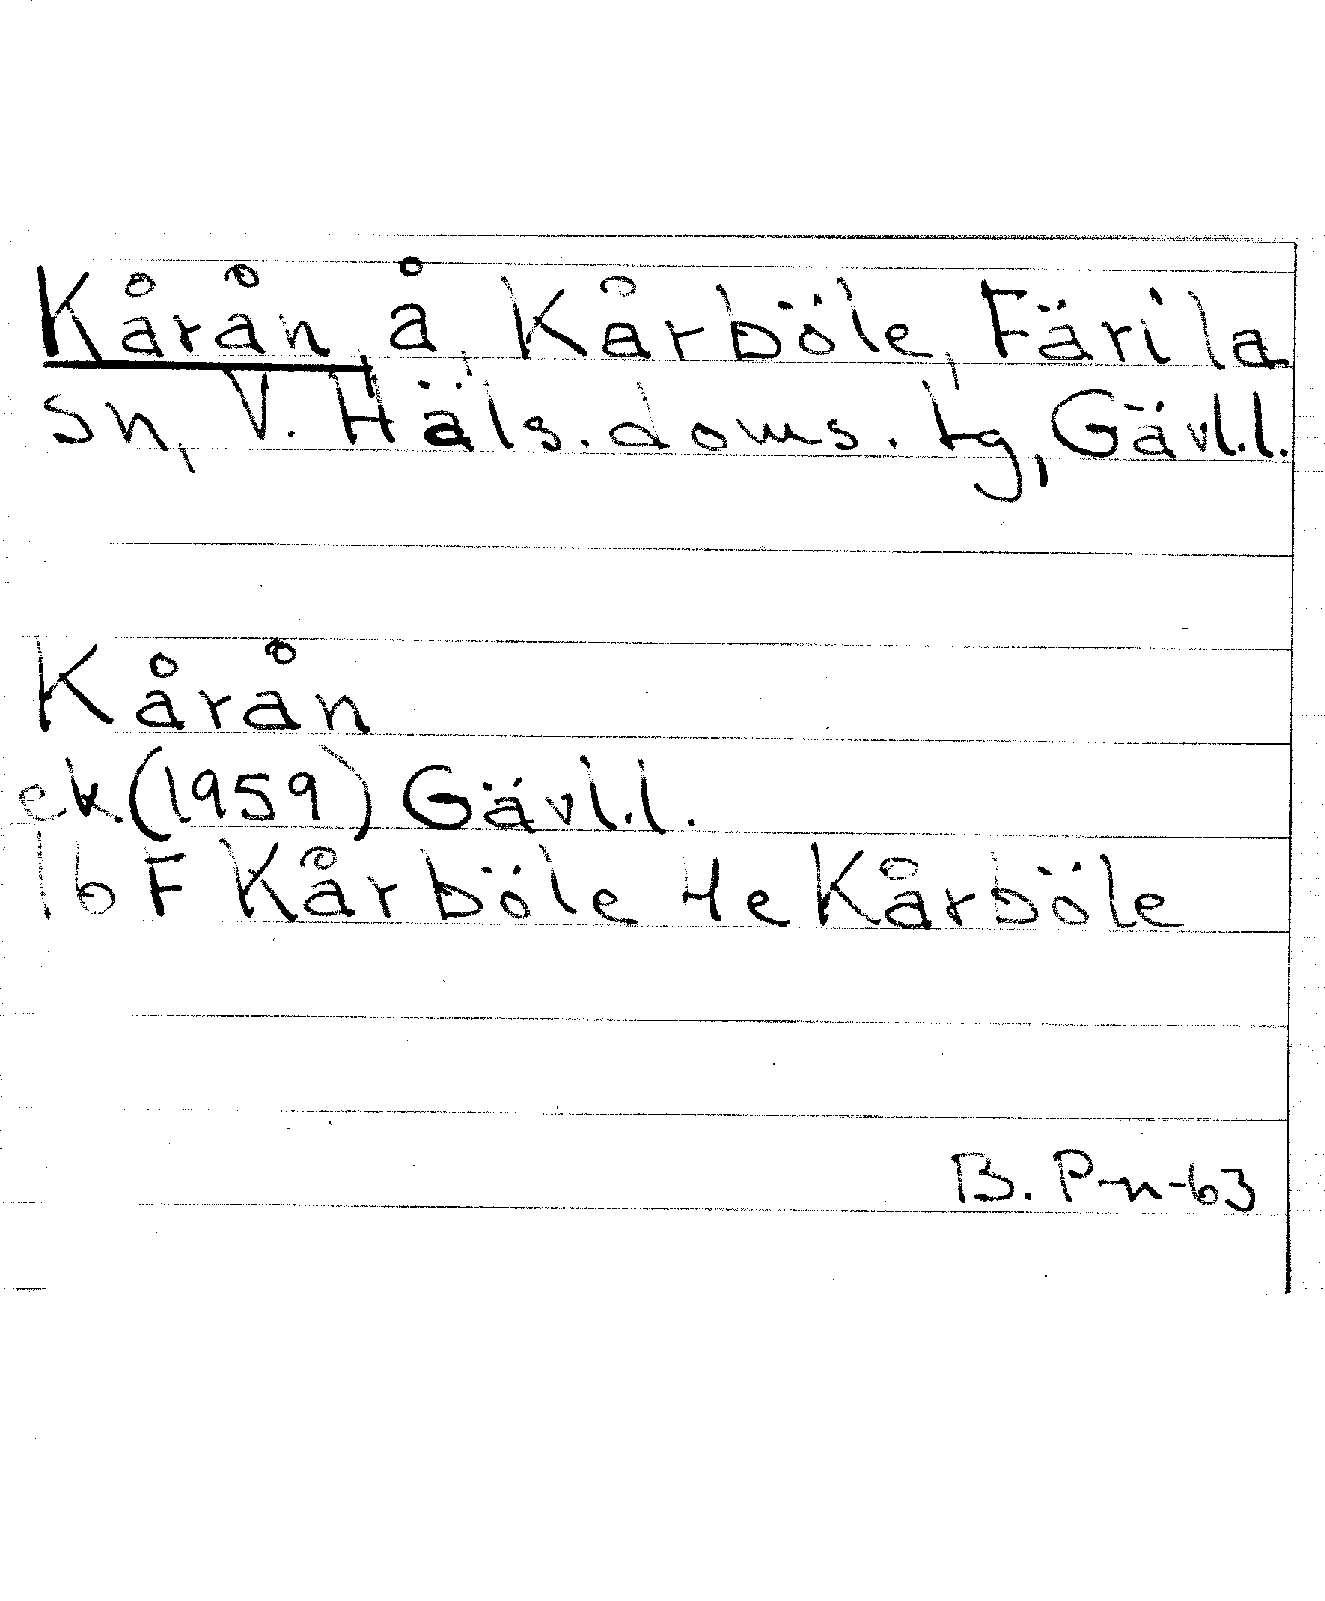 Kårån, å, Kårböle, Färila
sn, V. Häls. doms. tg, Gävl.l.
Kårån
ek (1959) Gävl.l.
16 F Kårböle 4e Kårböle
B. P-n-63